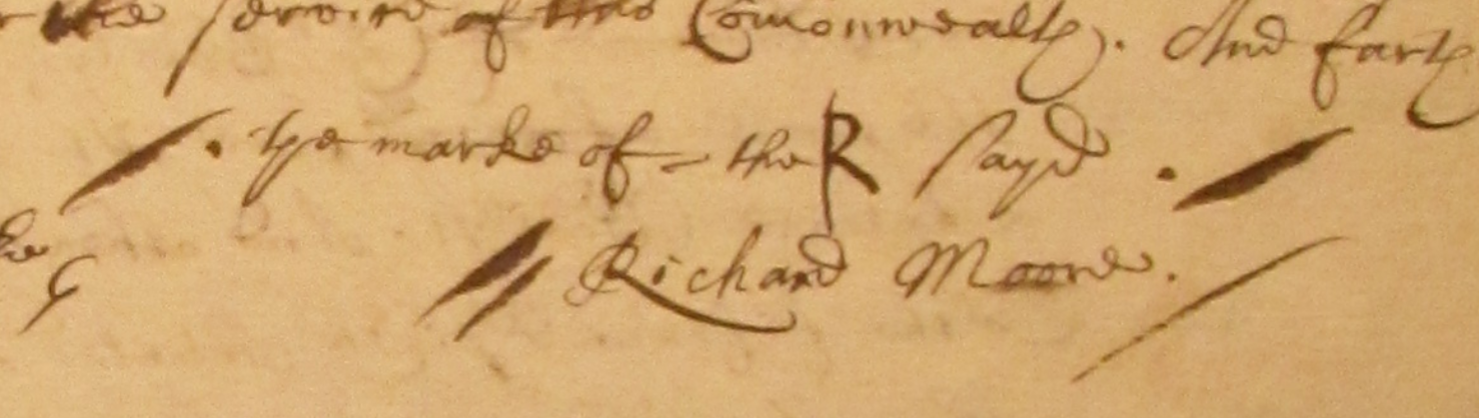 the service of this Comonwealth). And farth
. the marke of - the R sayd .
Richard Moore.